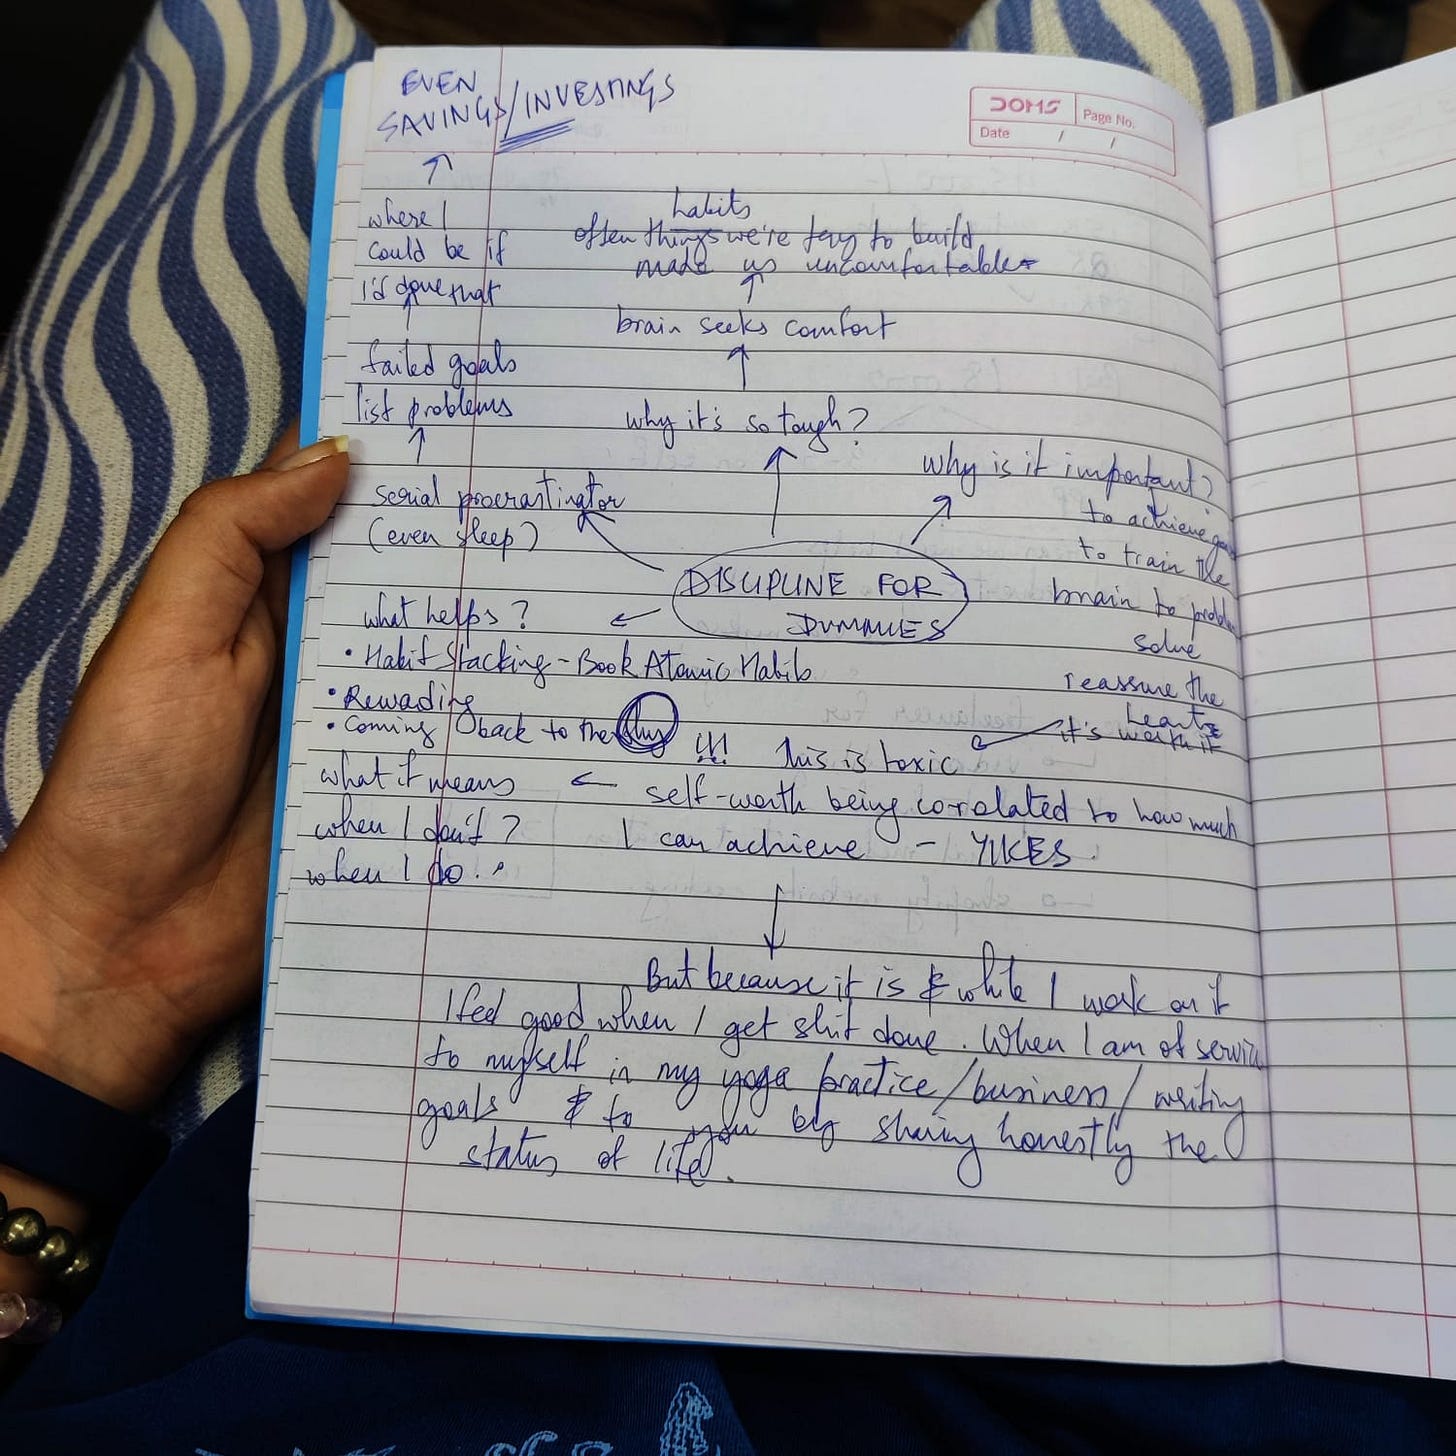 EVEN
SAVINGS/INVESTINGS
DOMS
Page No.
Date / /
where I
could be if
I'd done that
failed goals
list problems
serial procrastinator
(even sleep)
habits
often things we're trying to build
made us uncomfortable
brain seeks comfort
why it's so tough?
Why is it important?
to achieve goals
to train the
brain to problem
solve
reassure the
heart
it's worth it
DISCIPLINE FOR
DUMMIES
what helps?
• Habit Stacking - Book Atomic Habits
• Rewading
• Coming back to the why !!!
This is toxic
self-worth being corolated to how much
I can achieve - YIKES.
what it means
when I don't?
when I do.
But because it is & while I work on it
I feel good when I get shit done. When I am of service
to myself in my yoga practice/business/writing
goals & to you by sharing honestly the
status of life.